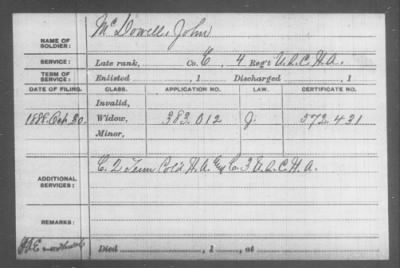 NAME OF SOLDIER: McDowell, John
SERVICE: Late rank, Co. E, 4 Reg't U.S.C.H.A.
TERM OF SERVICE: Enlisted , 1 Discharged , 1
DATE OF FILING. CLASS. APPLICATION NO. LAW. CERTIFICATE NO.
Invalid,
1888. 20. Widow, 383.012 J. 572.431
Minor,
ADDITIONAL SERVICES: C. 2 Tenn Cold H.A. Co. 3 U.S.C.H.A.
REMARKS:
Died , 1 , at